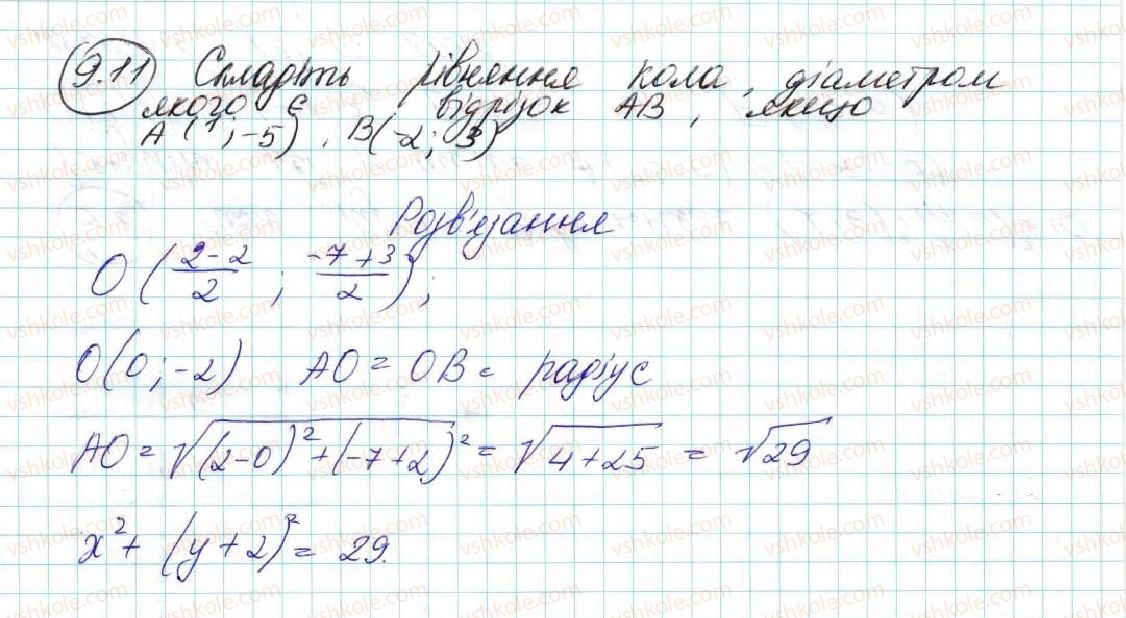 9.11 Складіть рівняння кола, діаметром
якого є відрізок AB, якщо
A (1; -5), B(-2; 3)
Розв'язання
O (2-2/2 ; -7+3/2);
O(0; -2) AO = OB = радіус
AO = √(2-0)²+(-7+2)² = √4+25 = √29
x²+ (y+2)² = 29.